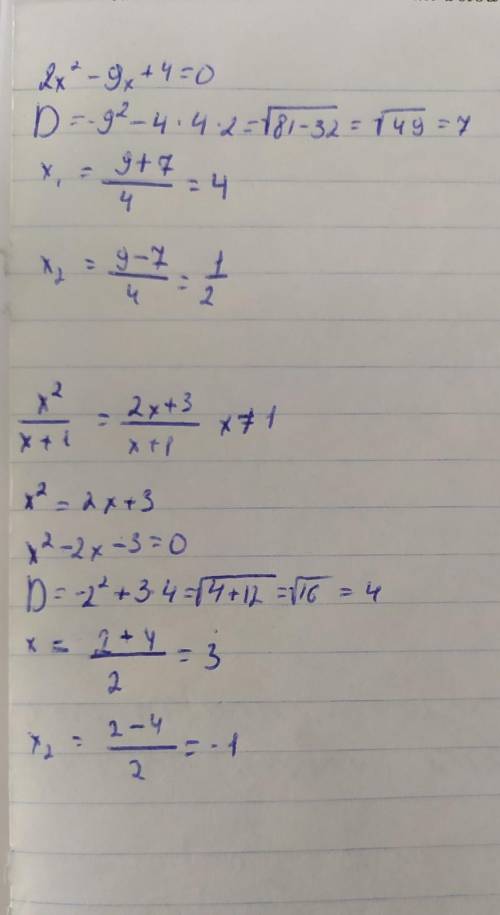 2x² - 9x + 4 = 0
D = -9² - 4 · 4 · 2 = √81-32 = √49 = 7
x₁ = (9+7)/4 = 4
x₂ = (9-7)/4 = 1/2
x²/(x+1) = (2x+3)/(x+1) x ≠ 1
x² = 2x + 3
x² - 2x - 3 = 0
D = -2² + 3 · 4 = √4+12 = √16 = 4
x = (2+4)/2 = 3
x₂ = (2-4)/2 = -1